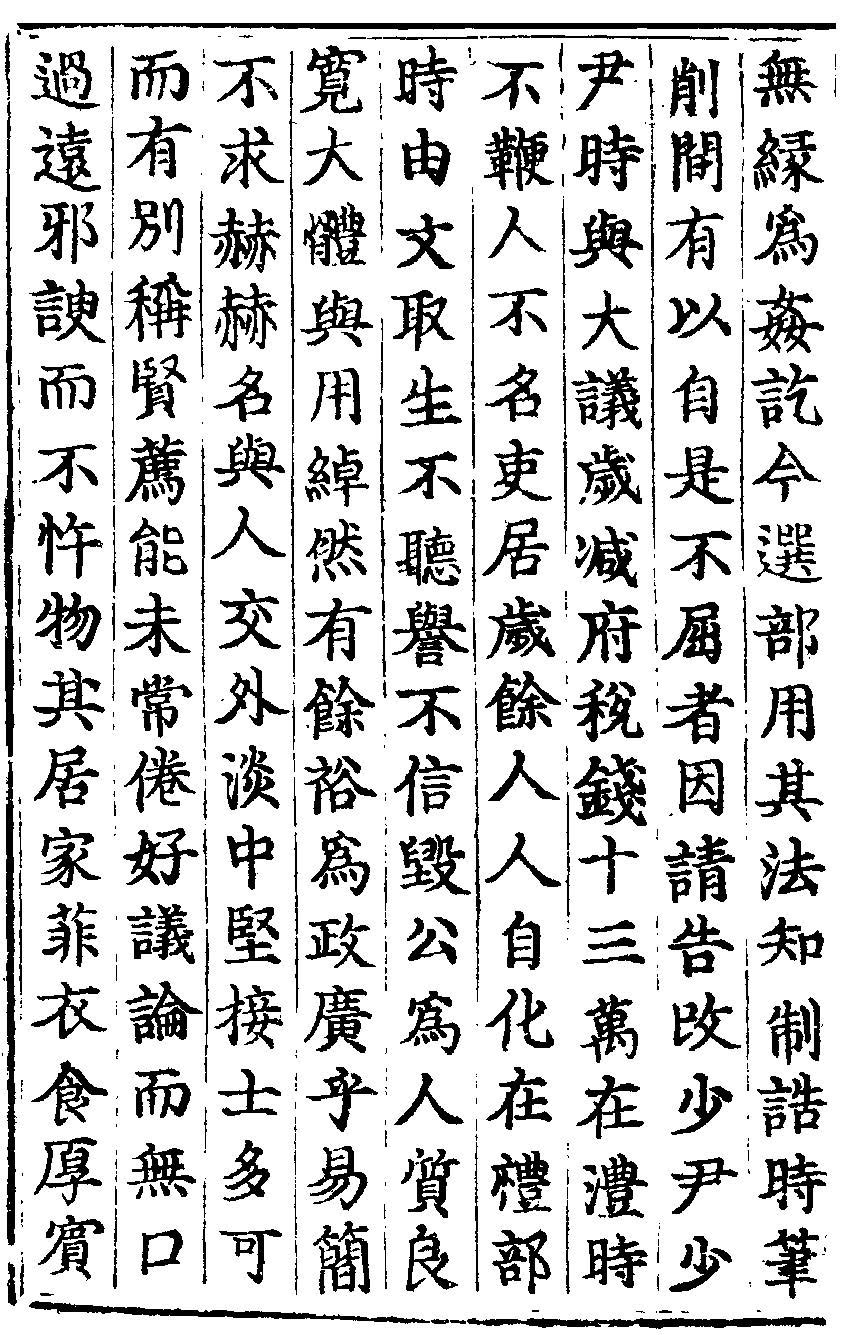 無緣爲姦訖今選部用其法知制誥時筆
削間有以自是不屈者因請告改少尹少
尹時與大議歲减府稅錢十三萬在澧時
不鞭人不名吏居歲餘人人自化在禮部
時由文取生不聽譽不信毀公爲人質良
寬大體與用綽然有餘裕爲政廣乎易簡
不求赫赫名與人交外淡中堅接士多可
而有別稱賢薦能未常倦好議論而無口
過遠邪諛而不忤物其居家菲衣食厚賓